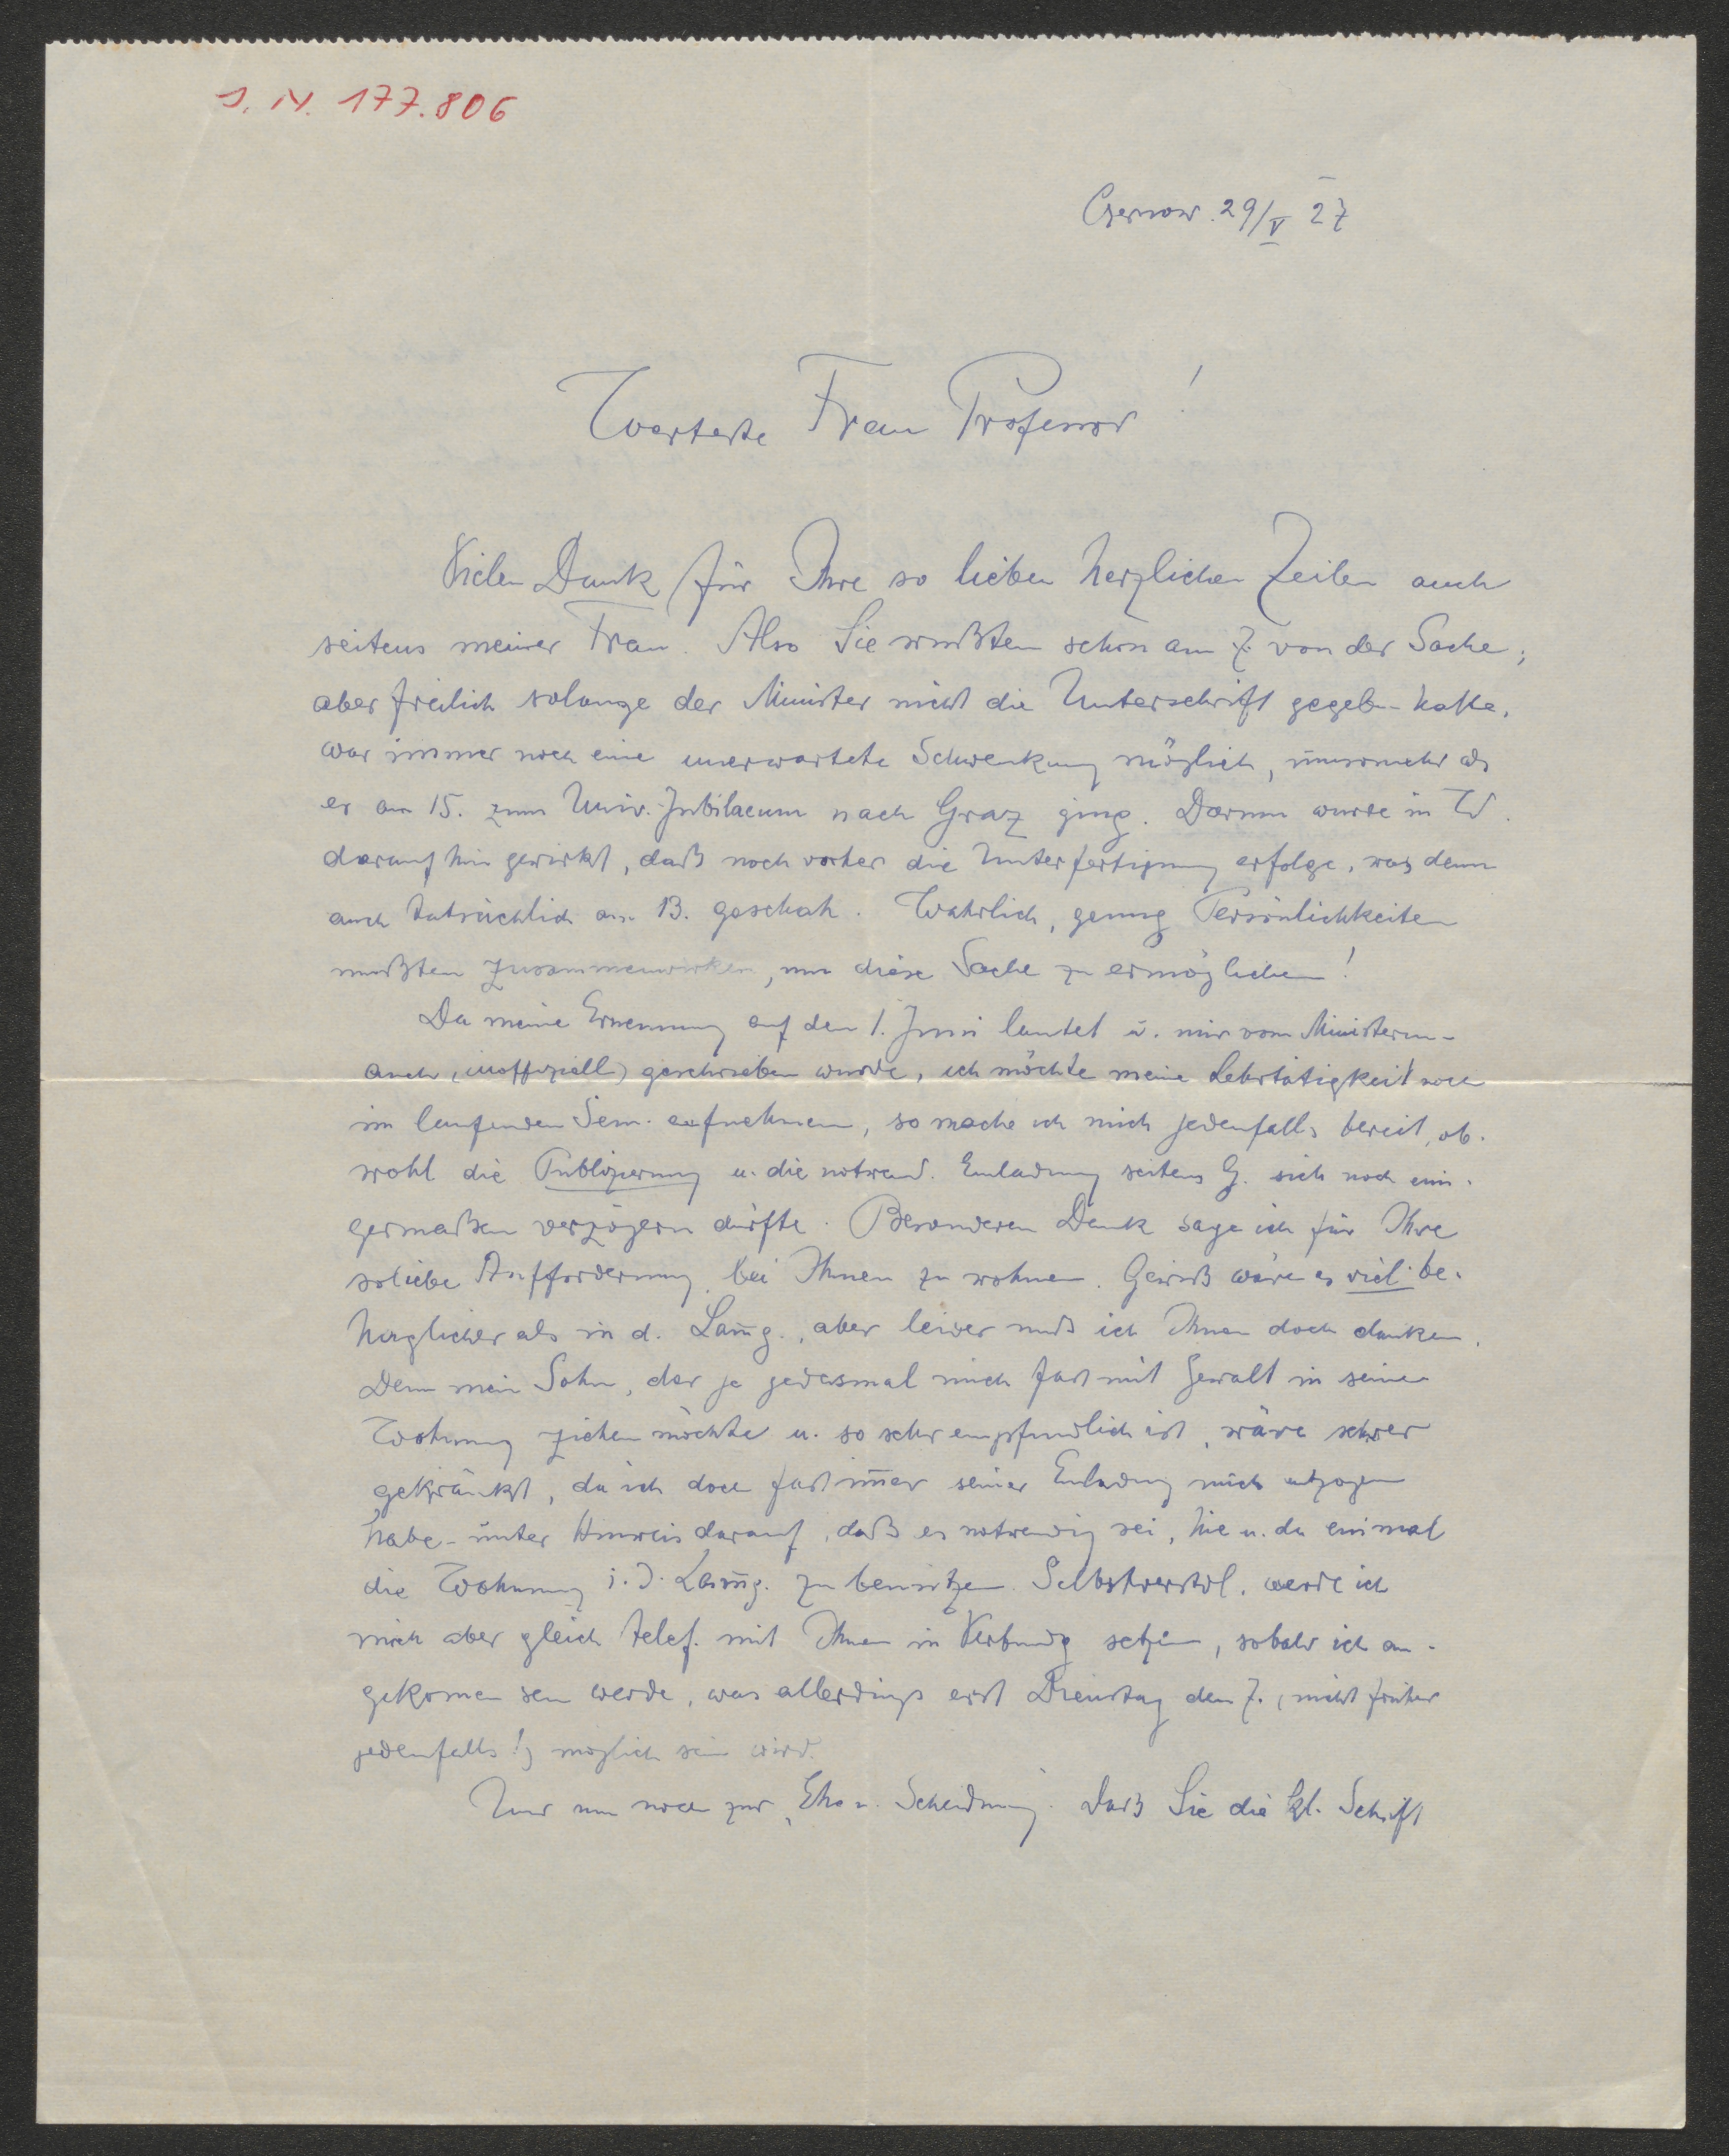 J. N. 177.806
Czernow. 29/V 27
Werteste Frau Professor!
Vielen Dank für Ihre so lieben herzlichen Zeilen auch
seitens meiner Frau. Also Sie wußten schon am 7. von der Sache;
aber freilich solange der Minister nicht die Unterschrift gegeben hatte,
war immer noch eine unerwartete Schwenkung möglich, umsomehr als
er am 15. zum Univ. Jubilaeum nach Graz ging. Darum wurde in W.
darauf hin gewirkt, daß noch vorher die Unterfertigung erfolge, was denn
auch tatsächlich am 13. geschah. Wahrlich, genug Persönlichkeiten
mußten zusammenwirken, um diese Sache zu ermöglichen!
Da meine Ernennung auf den 1. Juni lautet u. mir vom Ministerium
auch (inoffiziell) geschrieben wurde, ich möchte meine Lehrtätigkeit noch
im laufenden Sem. aufnehmen, so mache ich mich jedenfalls bereit, ob-
wohl die Publizierung u. die notwend. Einladung seitens G. sich noch eini-
germaßen verzögern dürfte. Besonderen Dank sage ich für Ihre
so liebe Aufforderung, bei Ihnen zu wohnen. Gewiß wäre es viel be-
haglicher als in d. Lam̅g., aber leider muß ich Ihnen doch danken.
Denn mein Sohn, der ja jedesmal mich fast mit Gewalt in seine
Wohnung ziehen möchte u. so sehr empfindlich ist, wäre schwer
gekränkt, da ich doch fast im̅er seiner Einladung mich entzogen
habe - unter Hinweis darauf, daß es notwendig sei, hie u. da einmal
die Wohnung i. d. Lam̅g. zu benützen. Selbstverstdl. werde ich
mich aber gleich telef. mit Ihnen in Verbindg setzen, sobald ich an-
gekomen sein werde, was allerdings erst Dienstag den 7. (nicht früher
jedenfalls!) möglich sein wird.
Und nun noch zur Ehe u. Scheidung. Daß Sie die kl. Schrift